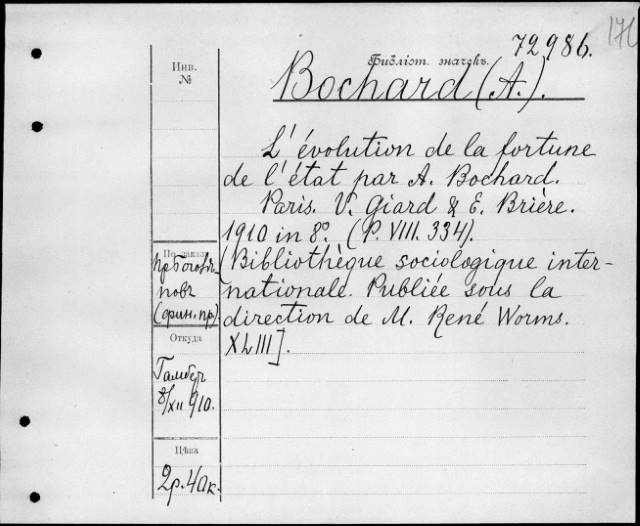 72986.
176
Инв.
№
Библіот. значекъ.
Bochard (A.).
L'évolution de la fortune
de l'état par A. Bochard.
Paris. V. Giard & E. Brière.
1910 in 8º. (P. VIII. 334).
[Bibliothèque sociologique inter-
nationale. Publiée sous la
direction de M. René Worms.
XLIII].
По заказу
новъ
(фин. пр.)
Откуда
8/XII 910.
Цѣна
2р. 40к.